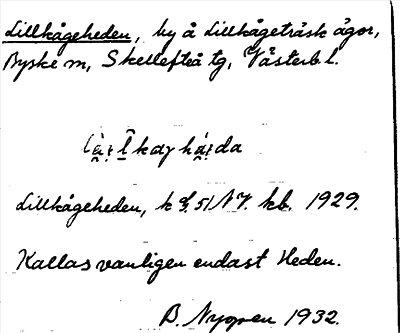 Lillkågeheden, by å Lillkågeträsk ägor,
Byske m, Skellefteå tg, Västerb l.
Lillkågeheden, k 51 NV. kb. 1929.
Kallas vanligen endast Heden.
B. Nygren 1932.